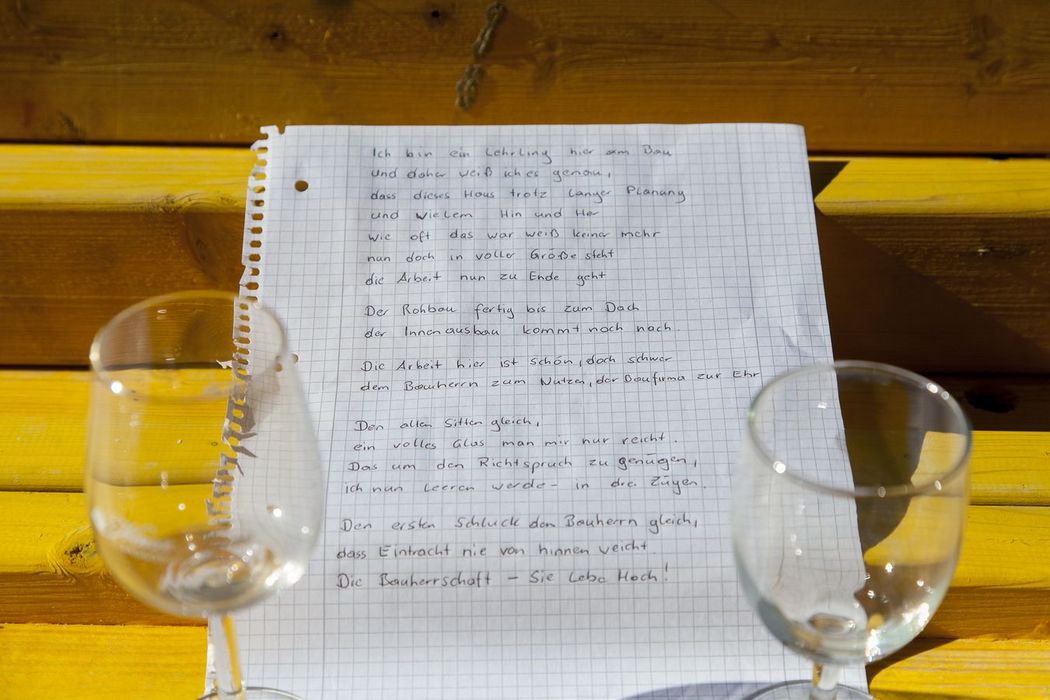 Ich bin ein Lehrling hier am Bau
und daher weiß ich es genau,
dass dieses Haus trotz langer Planung
und vielem Hin und Her
wie oft das war weiß keiner mehr
nun doch in voller Größe steht
die Arbeit nun zu Ende geht
Der Rohbau fertig bis zum Dach
der Innenausbau kommt noch nach.
Die Arbeit hier ist schön, doch schwer
dem Bauherrn zum Nutzen, der Baufirma zur Ehr
Den alten Sitten gleich,
ein volles Glas man mir nur reicht.
Das um den Richtspruch zu genügen,
ich nun leeren werde - in drei Zügen.
Den ersten Schluck dem Bauherrn gleich,
dass Eintracht nie von hinnen weicht
Die Bauherrschaft - Sie Lebe Hoch!